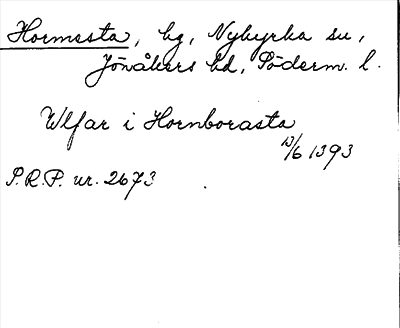 Hormesta, by, Nykyrka sn,
Jönåkers hd, Söderm. l.
Ulfar i Hornborasta
13/6 1393
S.R.P. nr. 2673